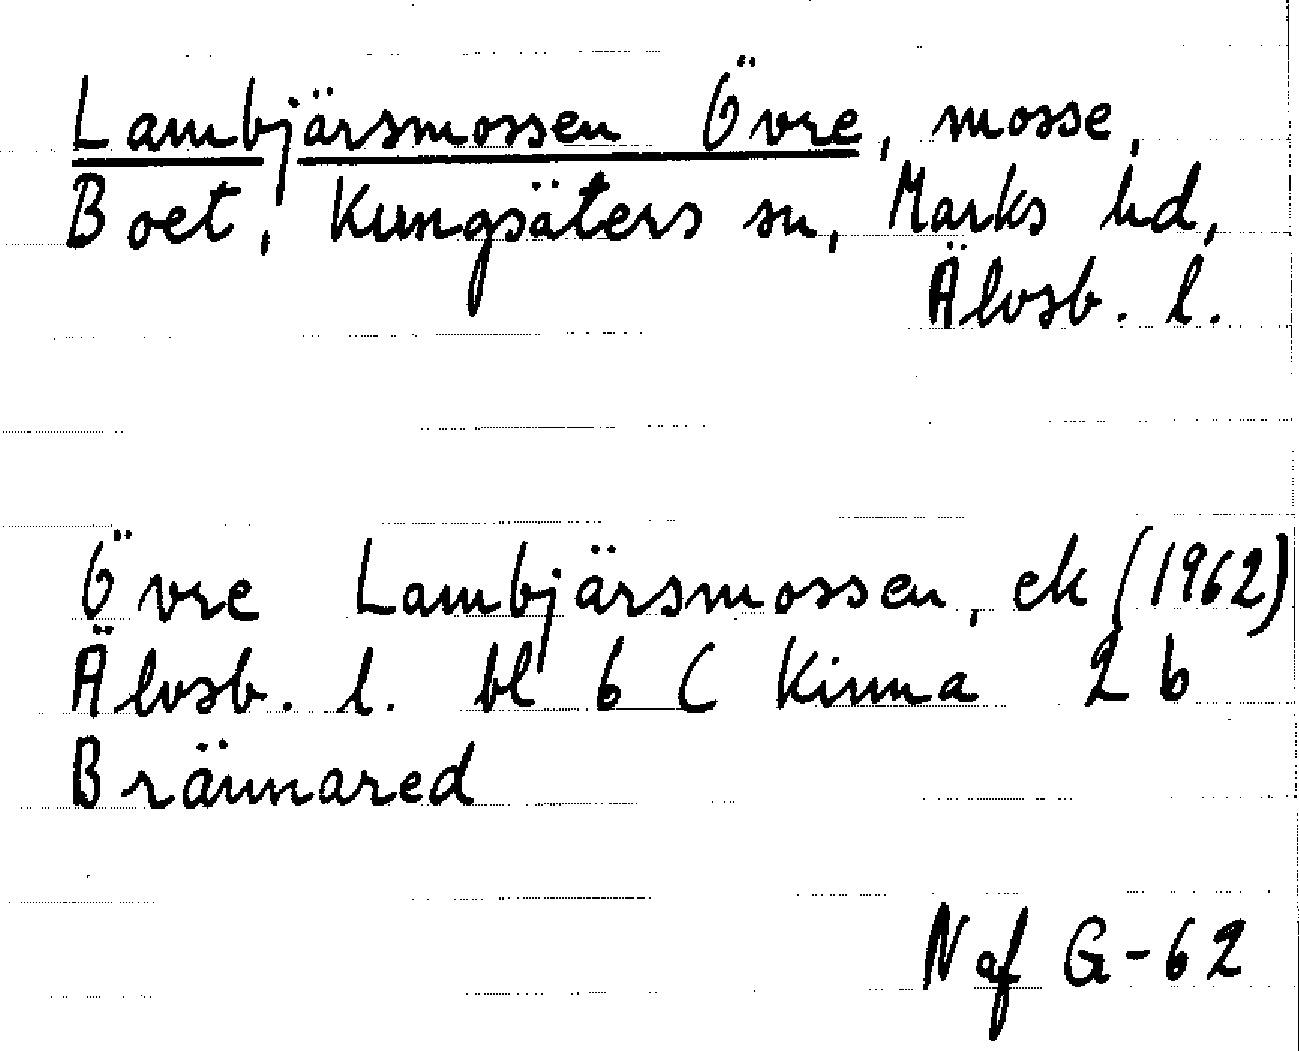 Lambjärsmossen Övre, mosse,
Boet, Kungsäters sn, Marks hd,
Älvsb. l.
Övre Lambjärsmossen, ek (1962)
Älvsb. l. bl 6 C Kinna 2 b
Brännared
N af G-62